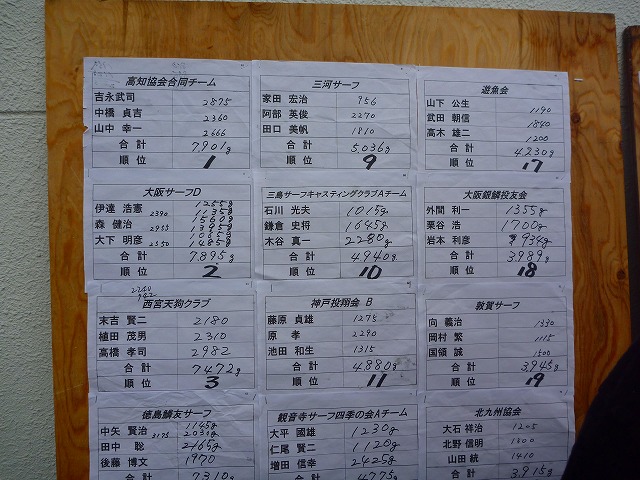 高知協会合同チーム
吉永武司 2875
中橋 貞吉 2360
山中 幸一 2666
合 計 7901g
順 位 1
大阪サーフD
伊達 浩憲 2390 1255g 1135g
森 健治 2955 1560g 1395g
大下 明彦 2550 1065g 1485g
合 計 7895g
順 位 2
西宮天狗クラブ
末吉 賢二 2180
植田 茂男 2310
高橋 孝司 2982
合 計 7472g
順 位 3
徳島鱗友サーフ
中矢 賢治 3175 1145g 2030g
田中 聡 2165g
後藤 博文 1970
合 計 7310g
三河サーフ
家田 宏治 956
阿部 英俊 2270
田口 美帆 1810
合 計 5036g
順 位 9
三島サーフキャスティングクラブAチーム
石川 光夫 1015g
鎌倉 史将 1645g
木谷 真一 2280g
合 計 4940g
順 位 10
神戸投翔会 B
藤原 貞雄 1275
原 孝 2290
池田 和生 1315
合 計 4880g
順 位 11
観音寺サーフ四季の会Aチーム
大平 國雄 1230g
仁尾 賢二 1120g
増田 信幸 2425g
合 計 4775g
遊魚会
山下 公生 1190
武田 朝信 1840
高木 雄二 1200
合 計 4230g
順 位 17
大阪銀鱗投友会
外間 利一 1355g
栗谷 浩 1700g
岩本 利彦 934g
合 計 3989g
順 位 18
敦賀サーフ
向 義治 1330
岡村 繁 1115
国領 誠 1500
合 計 3945g
順 位 19
北九州協会
大石 祥治 1205
北野 信明 1300
山田 統 1410
合 計 3915g